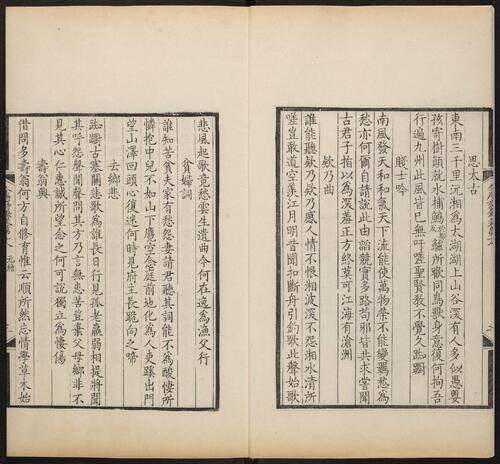 思太古
東南三千里沅湘為太湖湖上山谷深有人多似愚嬰
孩寄樹顛就水捕鱸所歡同鳥獸身意復何拘吾
行遍九州此風皆已無吁嗟聖賢教不覺久踟躕
賤士吟
南風發天和和氣天下流能使萬物榮不能變羈愁為
愁亦何爾自請說此由諂競實多路苟邪皆共求嘗聞
古君子指以為深羞正方終莫可江海有滄洲
欸乃曲
誰能聽欸乃欸乃感人情不恨湘波深不怨湘水清所
嗟豈敢道空羨江月明昔聞扣斷舟引釣歌此聲始歌
悲風起歌竟愁雲生遺曲今何在逸為漁父行
貧婦詞
誰知苦貧夫家有愁怨妻請君聽其詞能不為酸悽所
憐抱中兒不如山下麑空念庭前地化為人吏蹊出門
望山澤回頭心復迷何時見府主長跪向之啼
去鄉悲
踟躕古塞關悲歌為誰長日行見孤老羸弱相提將聞
其呼怨聲聞聲問其方乃言無患苦豈棄父母鄉非不
見其心仁惠誠所望念之何可說獨立為悽傷
壽翁興
借問多壽翁何方自修育惟云順所然忘情學草木始
元結